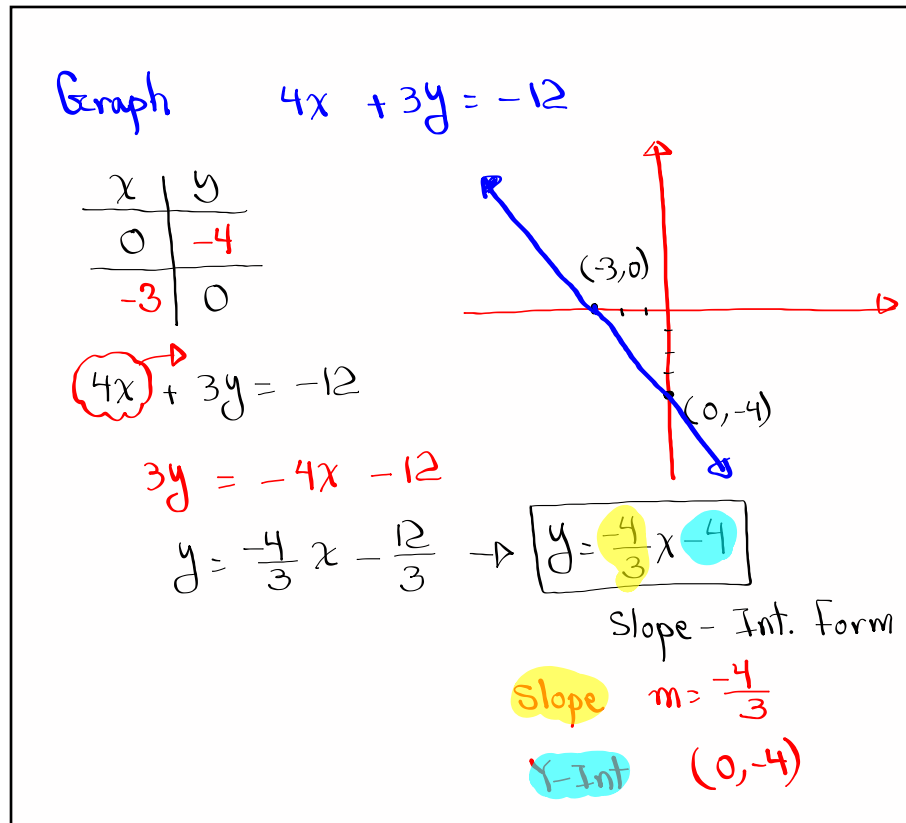 Graph 4x + 3y = -12
x y
0 -4
-3 0
(-3,0)
(0,-4)
4x + 3y = -12
3y = -4x -12
y = -4/3 x - 12/3 → y = -4/3 x -4
Slope - Int. Form
Slope m = -4/3
Y-Int (0,-4)